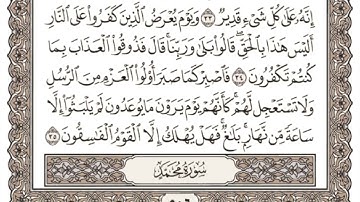 إِنَّهُۥ عَلَىٰ كُلِّ شَىْءٍ قَدِيرٌ ٣٣ وَيَوْمَ يُعْرَضُ ٱلَّذِينَ كَفَرُوا۟ عَلَى ٱلنَّارِ
أَلَيْسَ هَـٰذَا بِٱلْحَقِّ ۖ قَالُوا۟ بَلَىٰ وَرَبِّنَا ۚ قَالَ فَذُوقُوا۟ ٱلْعَذَابَ بِمَا
كُنتُمْ تَكْفُرُونَ ٣٤ فَٱصْبِرْ كَمَا صَبَرَ أُو۟لُوا۟ ٱلْعَزْمِ مِنَ ٱلرُّسُلِ
وَلَا تَسْتَعْجِل لَّهُمْ ۚ كَأَنَّهُمْ يَوْمَ يَرَوْنَ مَا يُوعَدُونَ لَمْ يَلْبَثُوٓا۟ إِلَّا
سَاعَةً مِّن نَّهَارٍۭ ۚ بَلَـٰغٌ ۚ فَهَلْ يُهْلَكُ إِلَّا ٱلْقَوْمُ ٱلْفَـٰسِقُونَ ٣٥
سُورَةُ مُحَمَّدٍ